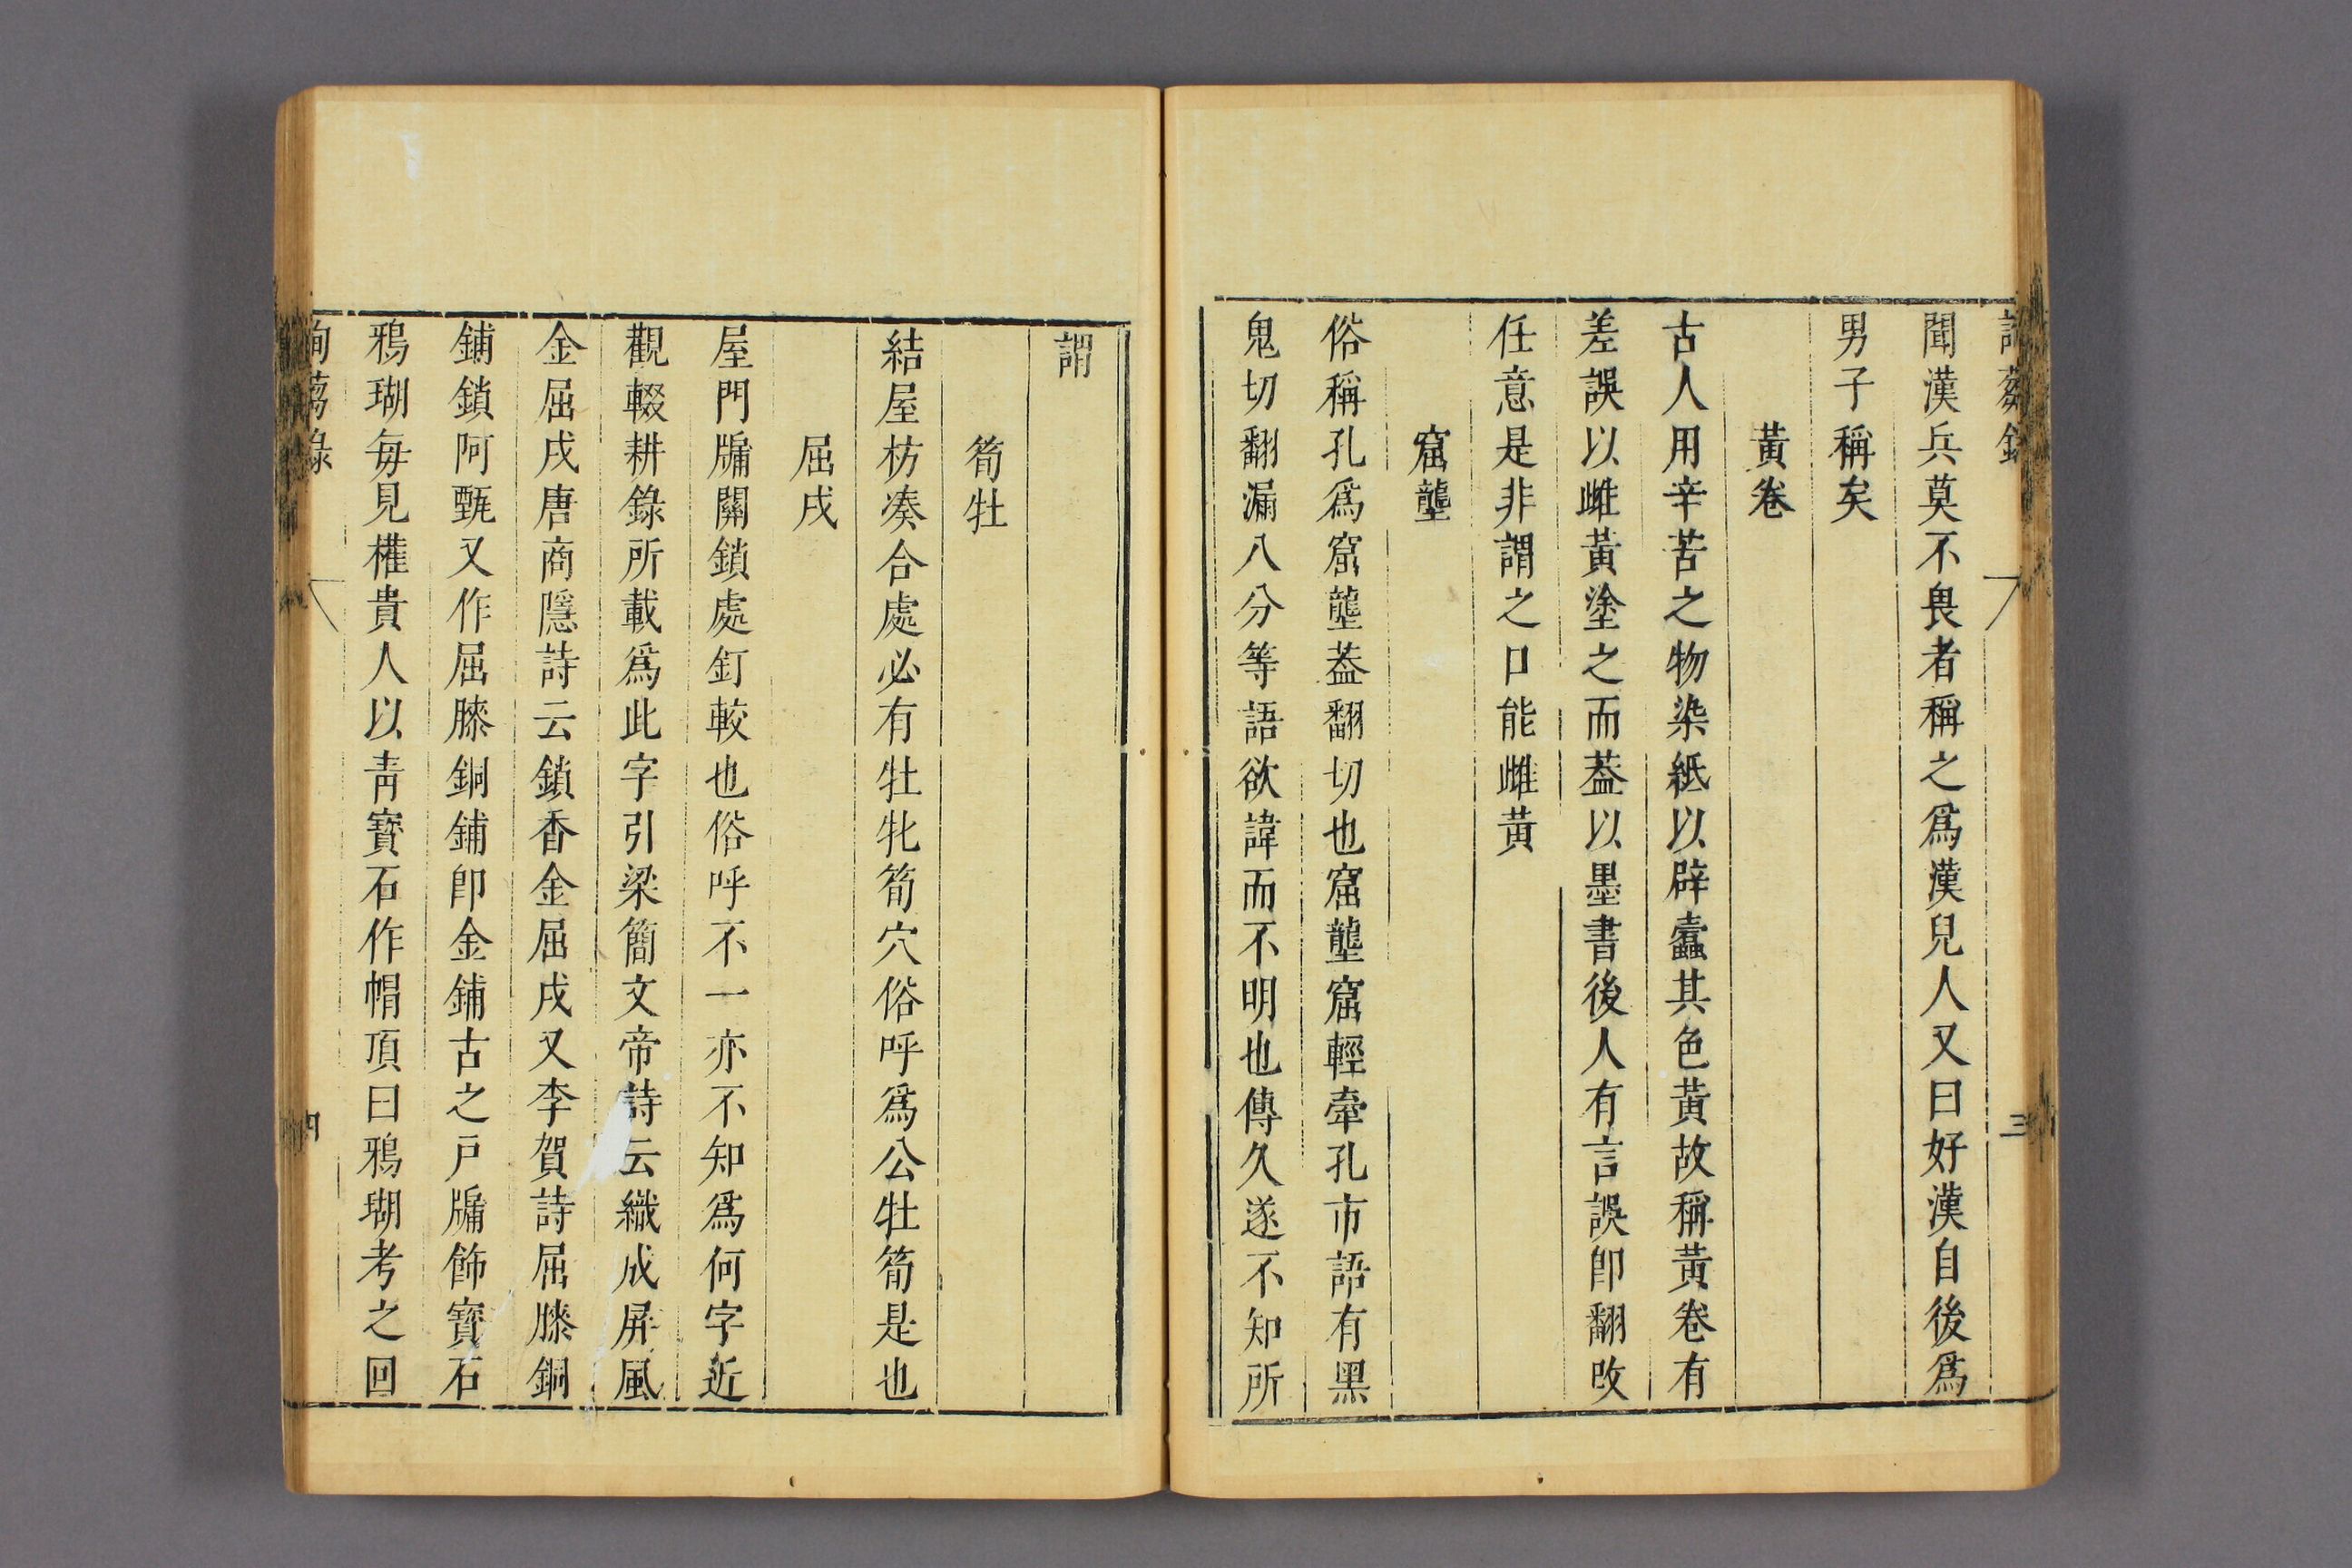 聞漢兵莫不畏者稱之爲漢兒人又曰好漢自後爲
男子稱矣
黃卷
古人用辛苦之物染紙以辟蠹其色黃故稱黃卷有
差誤以雌黃塗之而葢以墨書後人有言誤卽翻改
任意是非謂之口能雌黃
窟壟
俗稱孔爲窟壟葢翻切也窟壟窟輕牽孔市語有黑
鬼切翻漏八分等語欲諱而不明也傳久遂不知所
三
謂
筍牡
結屋枋凑合處必有牡牝筍穴俗呼爲公牡筍是也
屈戌
屋門牖關鎖處釘較也俗呼不一亦不知爲何字近
觀輟耕錄所載爲此字引梁簡文帝詩云織成屏風
金屈戌唐商隱詩云鎖香金屈戌又李賀詩屈膝銅
鋪鎖阿甄又作屈膝銅鋪卽金鋪古之戸牖飾寶石
鴉瑚毎見權貴人以靑寶石作帽頂曰鴉瑚考之回